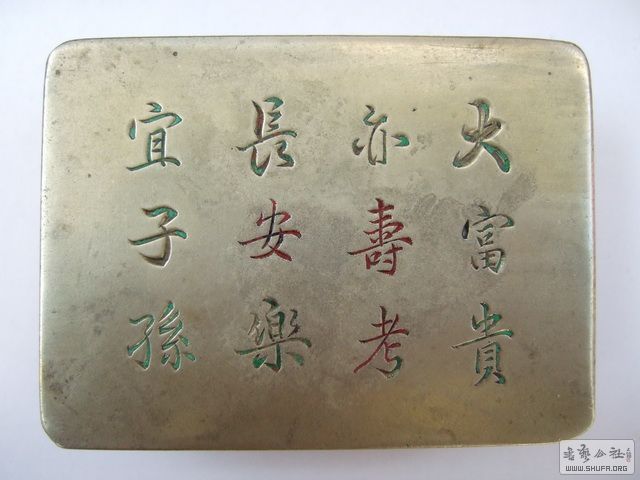 大富貴
亦壽考
長安樂
宜子孫
書藝公社
WWW.SHUFA.ORG